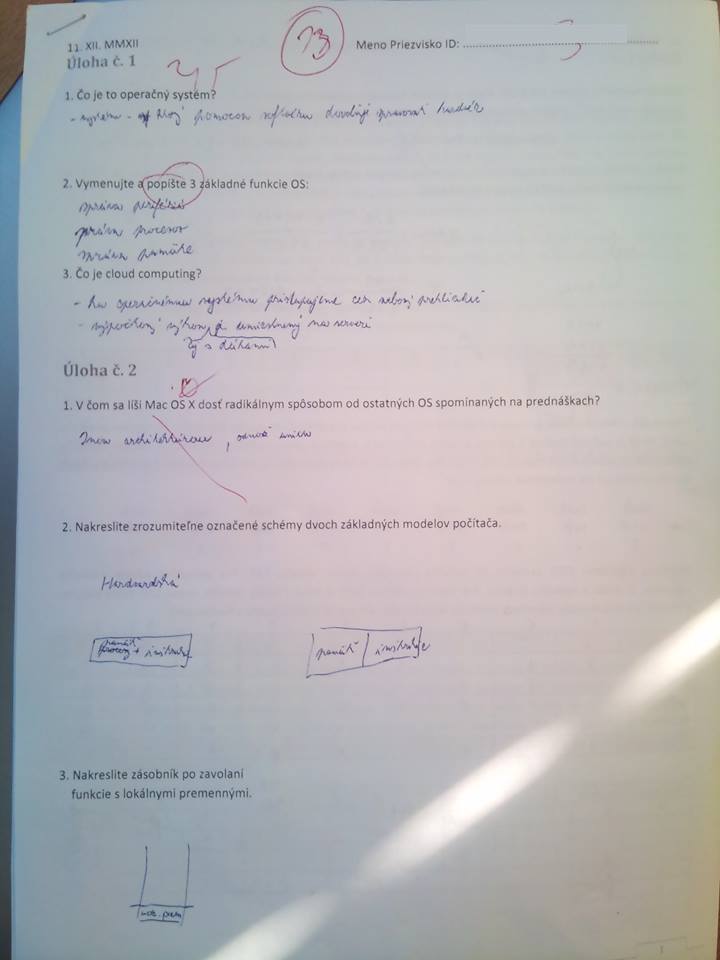 11. XII. MMXII
13
Meno Priezvisko ID: ........................................................
3
Úloha č. 1
1. Čo je to operačný systém?
- systém - ktorý pomocou softvéru dovoľuje spravovať hardvér
2. Vymenujte a popíšte 3 základné funkcie OS:
správa periférií
správa procesov
správa pamäte
3. Čo je cloud computing?
- ku operačnému systému pristupujeme cez webový prehliadač
- výpočtový výkon je umiestnený na serveri
aj s dátami
Úloha č. 2
1. V čom sa líši Mac OS X dosť radikálnym spôsobom od ostatných OS spomínaných na prednáškach?
Inou architektúrou,
2. Nakreslite zrozumiteľne označené schémy dvoch základných modelov počítača.
Hardvardská
pamäť
+ inštrukcie
pamäť inštrukcie
3. Nakreslite zásobník po zavolaní
funkcie s lokálnymi premennými.
1